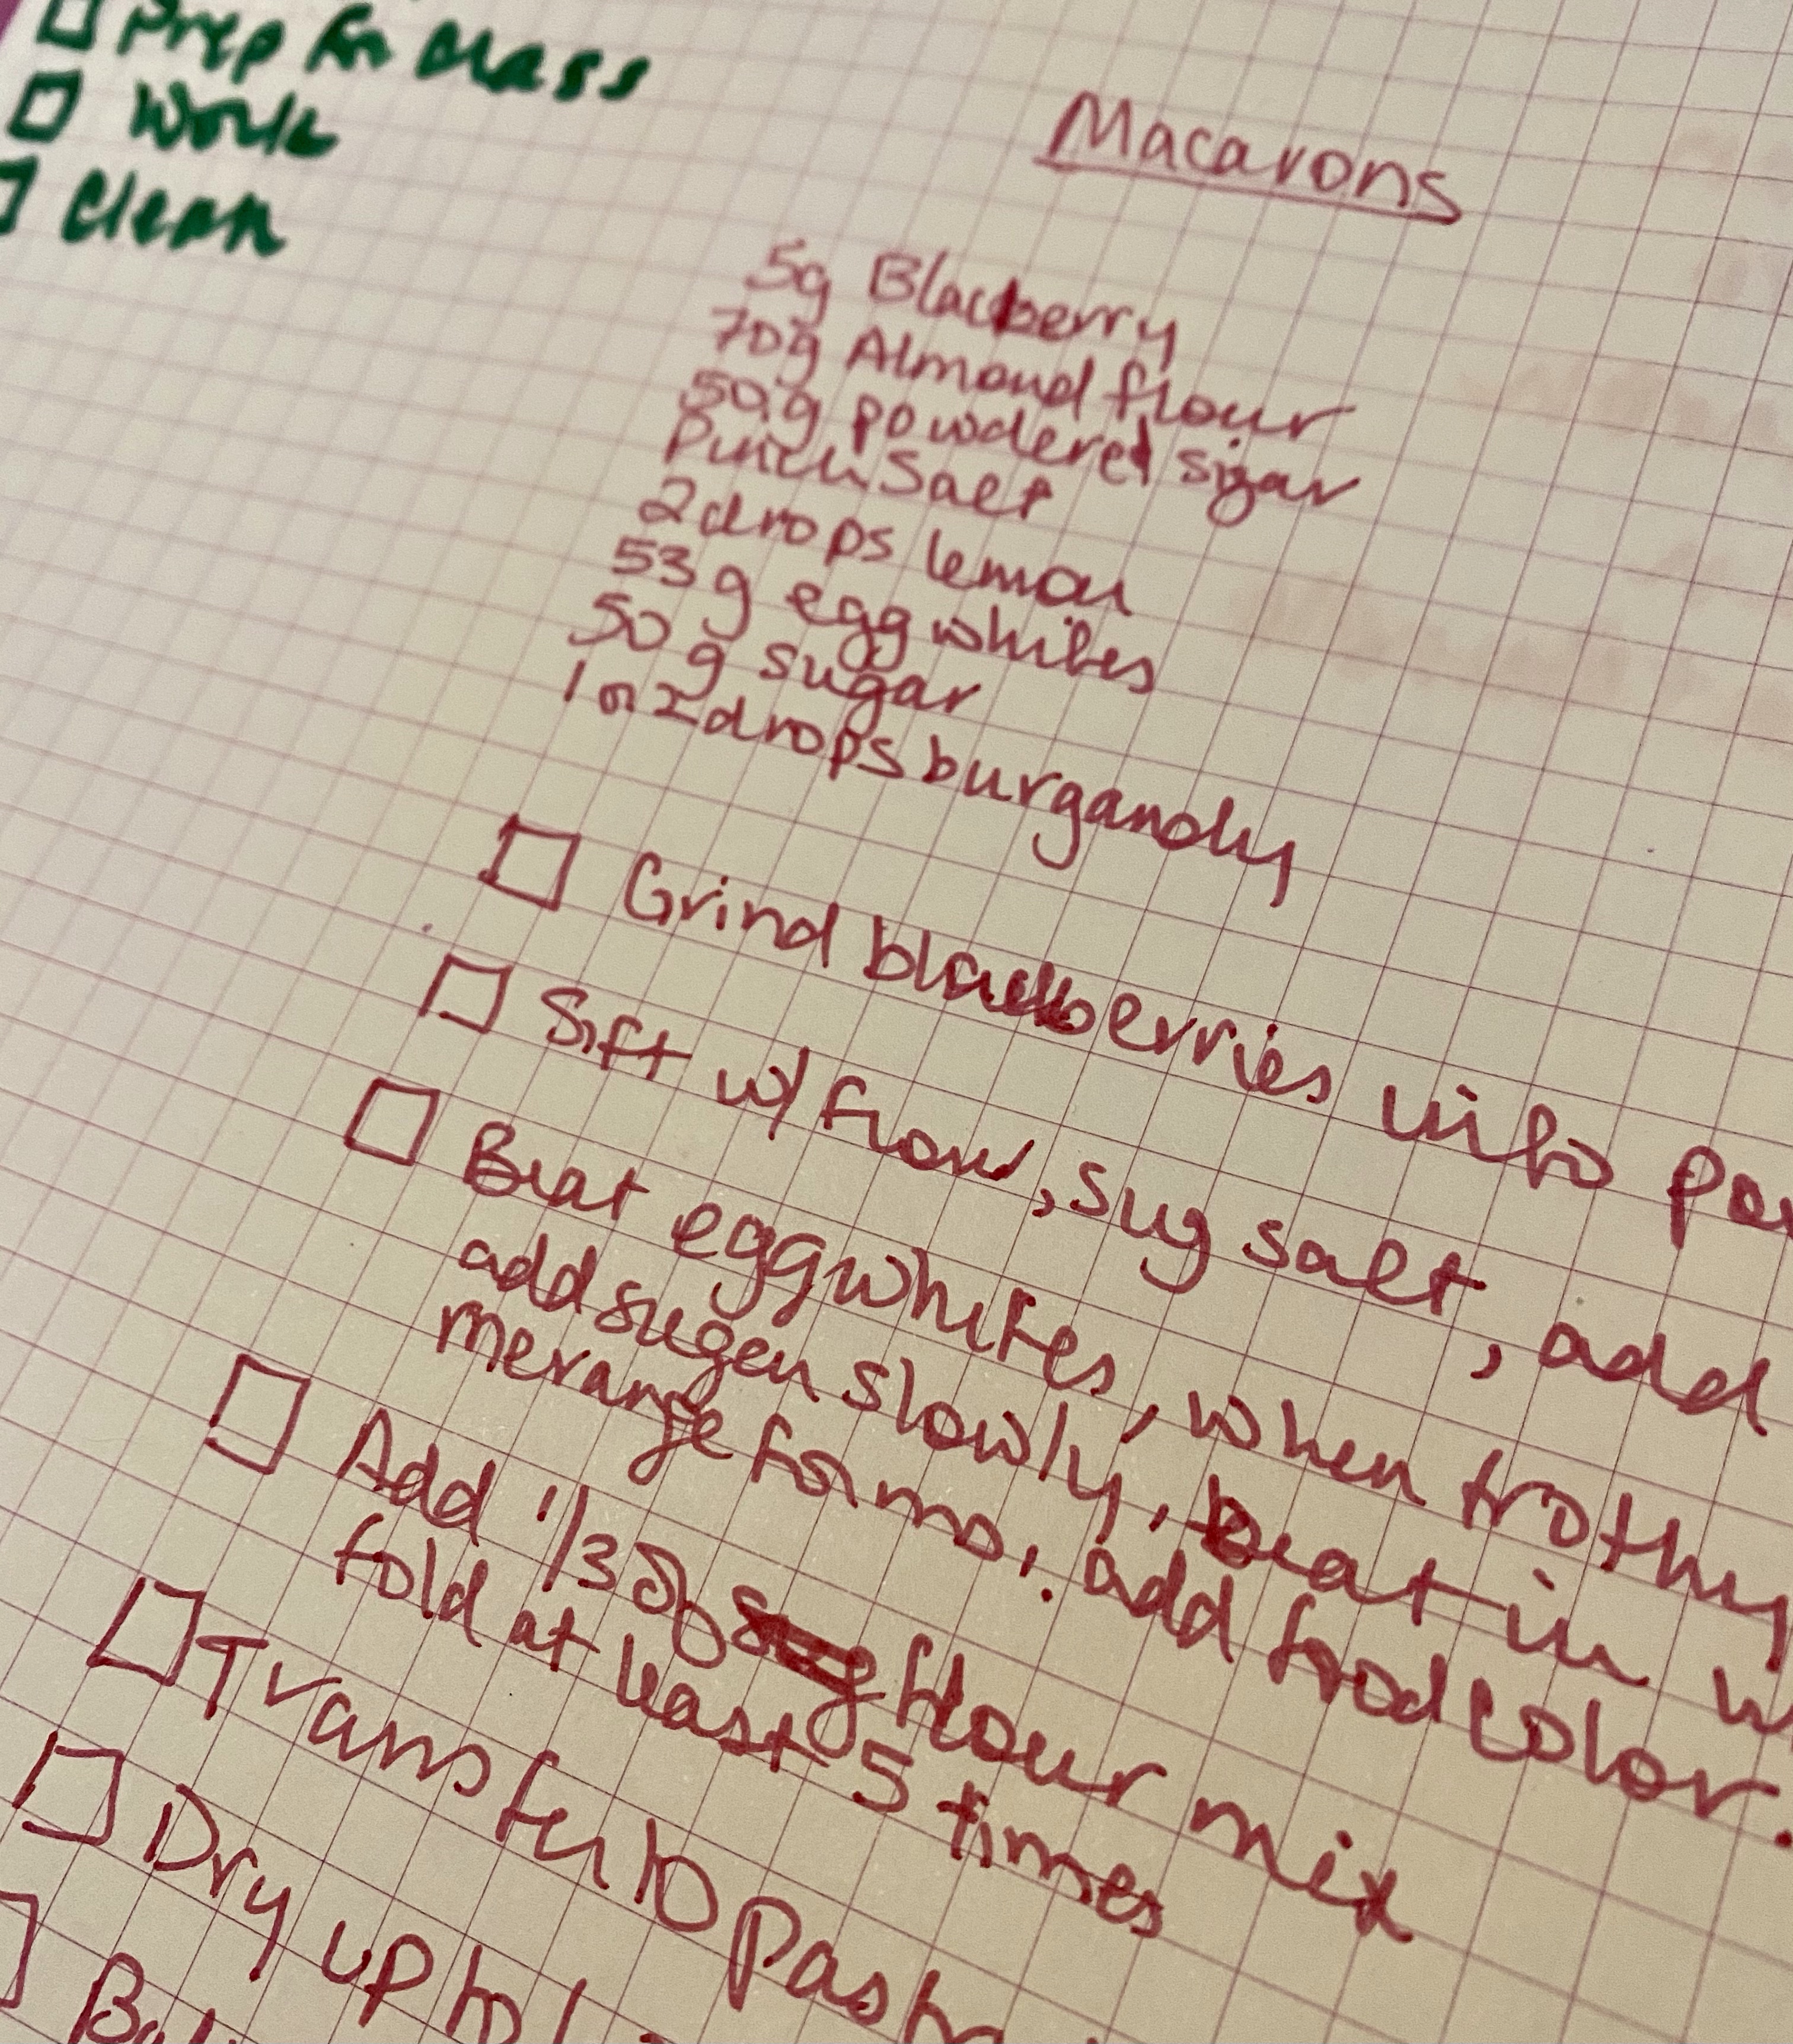 Prep for class
Work
Clean
Macarons
5g Blackberry
70g Almond flour
50g powdered sigar
Pinch Salt
2 drops lemon
53 g egg whites
50 g sugar
1 or 2 drops burgandy
Grind blackberries into
Sift w/ flour, sug salt, add
Beat egg whites, when frothy
add sugar slowly, beat in
merange forms, add food color.
Add 1/3 of flour mix
fold at least 5 times
Transfer to
Dry up to